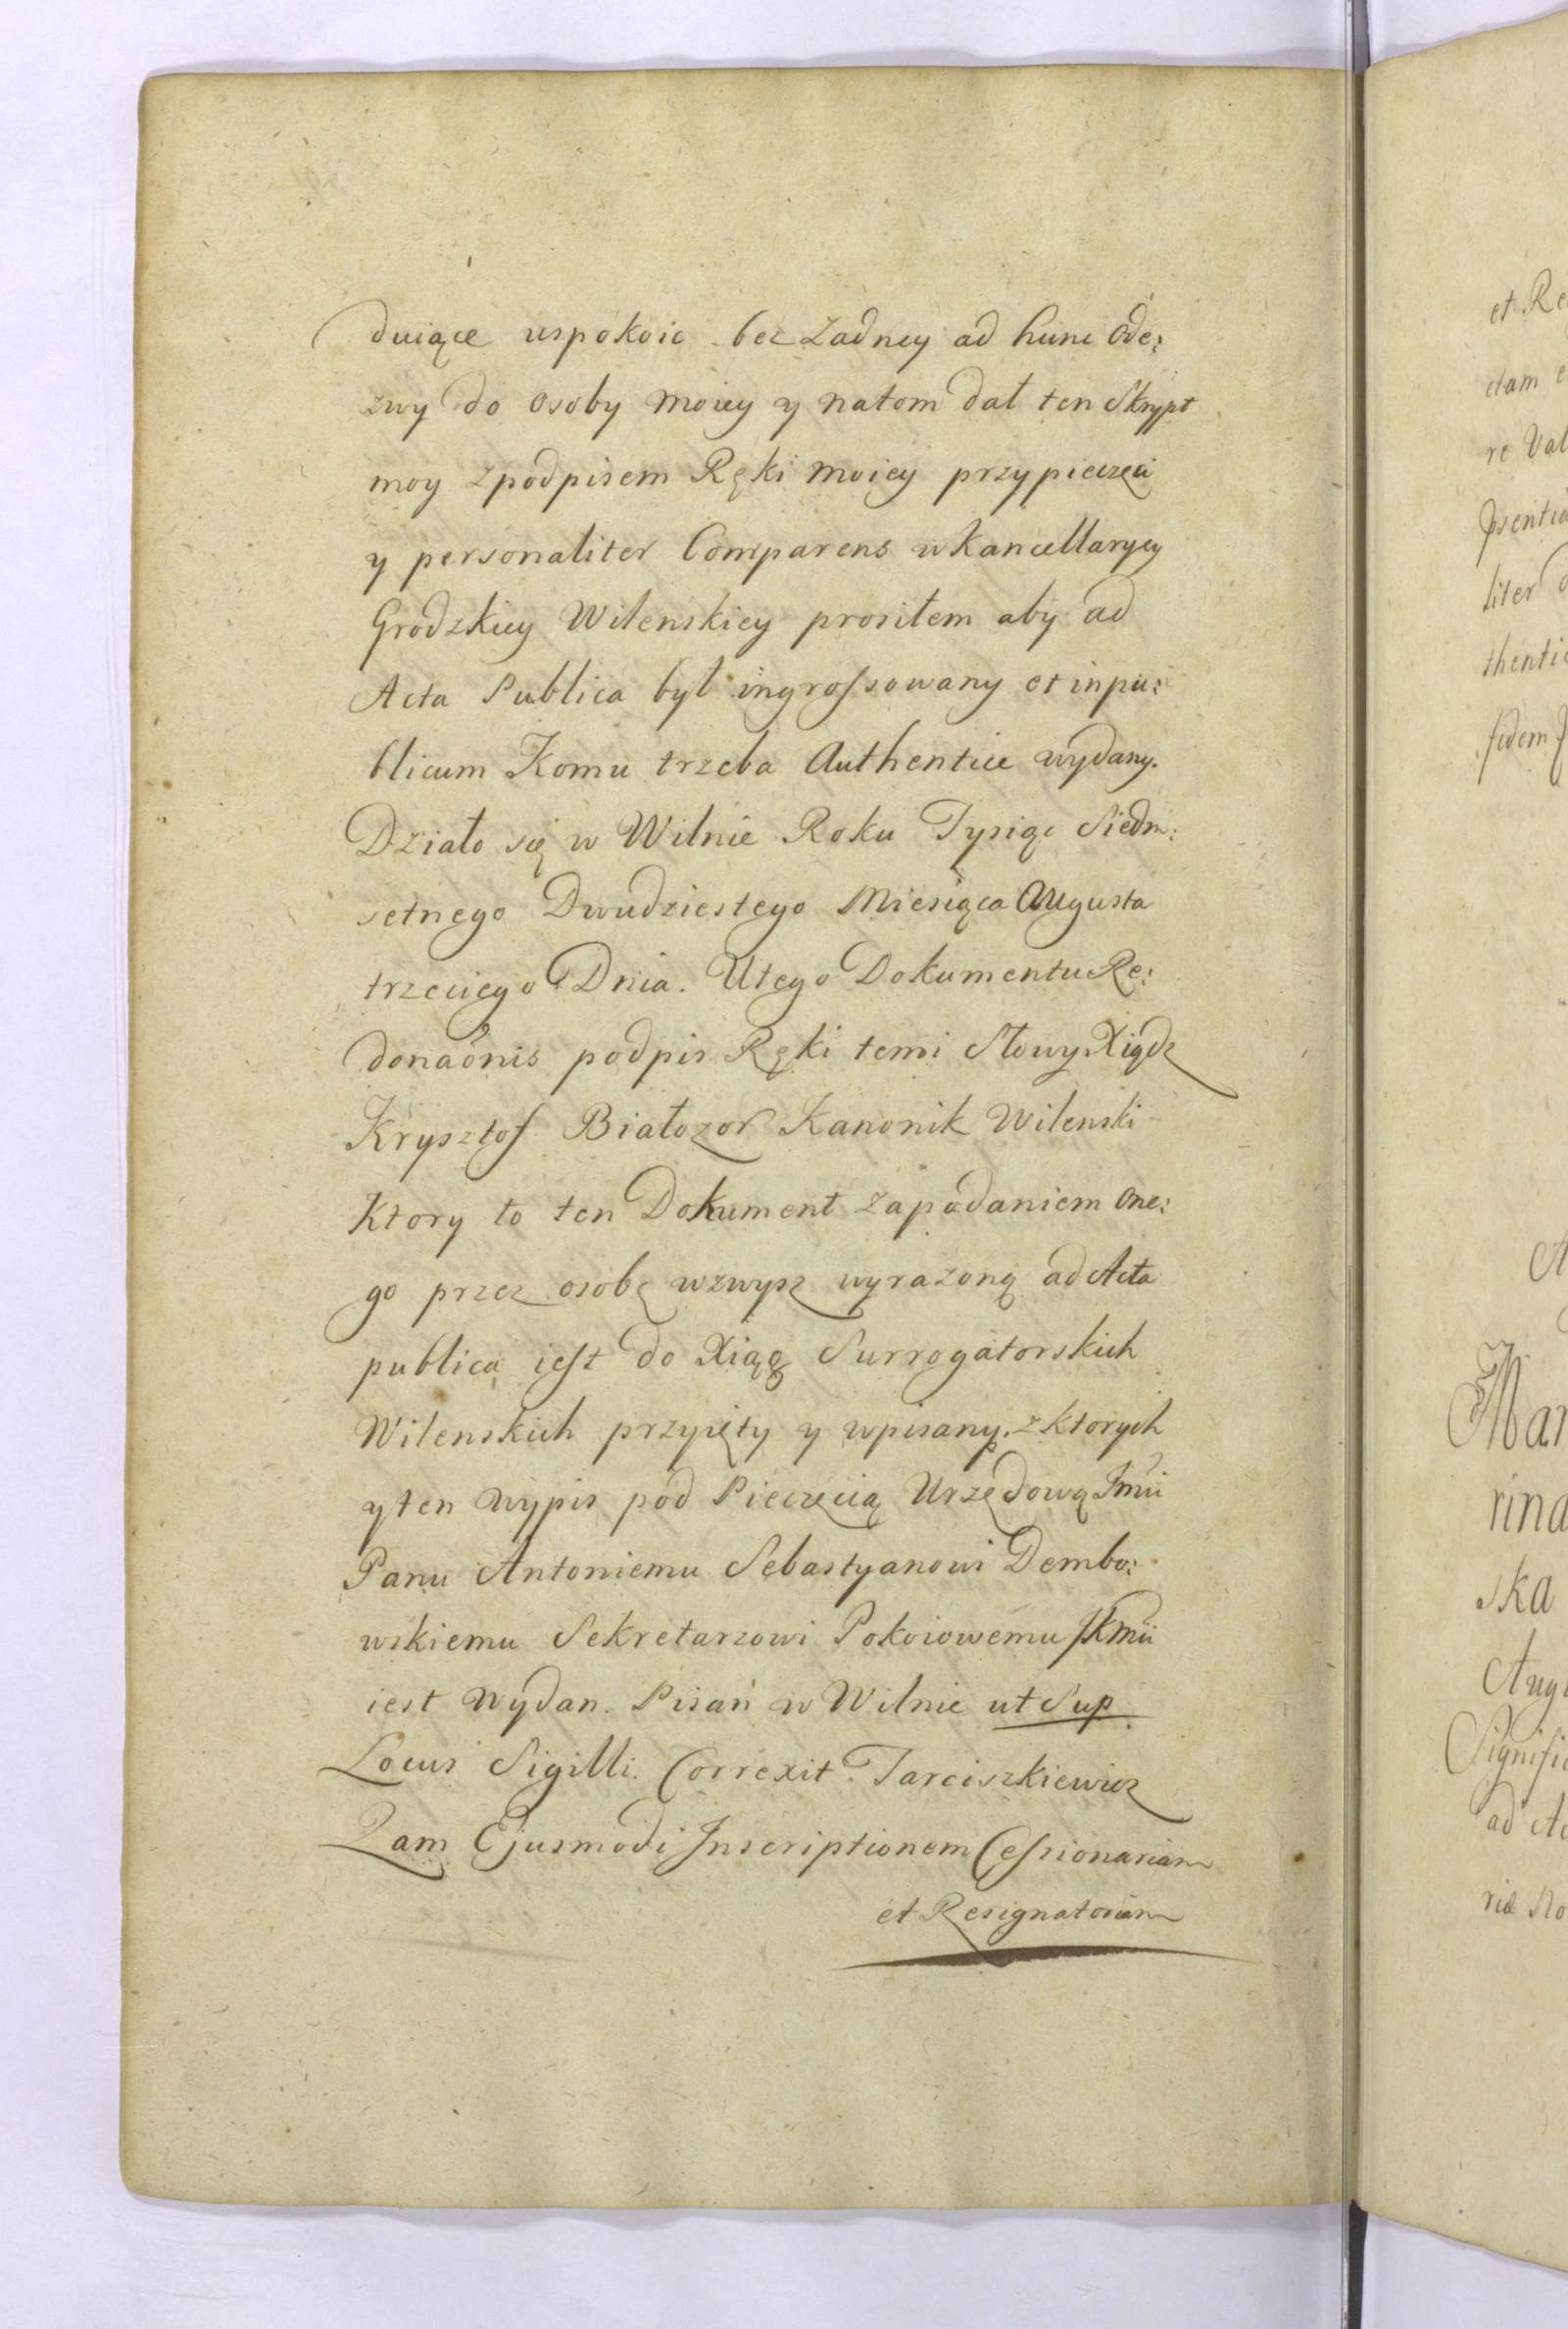 duiące uspokoic bez Zadney ad hunc Ode:
zwy do osoby moiey y natom dał ten Skrypt
moy zpodpisem Ręki moiey przypieczęci
y personaliter Comparens w Kancellaryey
Grodzkiey Wilenskiey prosiłem aby ad
Acta Publica był ingrossowany et inpu:
blicum Komu trzeba Authentice wydany.
Działo się w Wilnie Roku Tysiąc Siedm:
setnego Dwudziestego Miesiąca Augusta
trzeciego Dnia. Utego Dokumentu Re:
donaõnis podpis Ręki temi Słowy Xiądz
Krysztof Białozor Kanonik Wilenski
Ktory to ten Dokument zapodaniem one:
go przez osobę wzwysz wyrazoną ad Acta
publica iest do Xiąg Surrogatorskich
Wilenskich przyięty y wpisany. z ktorych
y ten wypis pod Pieczęcią Urzędową Jmũi
Panu Antoniemu Sebastyanowi Dembo:
wskiemu Sekretarzowi Pokoiowemu JKmũi
iest wydan. Pisań w Wilnie ut Sup
Locus Sigilli. Correxit Tarciszkiewicz
Qam Ejusmodi Inscriptionem Cessionariam
et Resignatoriam
et Re
ctam
re Val
liter
thentic
fidem
Mar
rina
ska
Augu
Signific
ad Ac